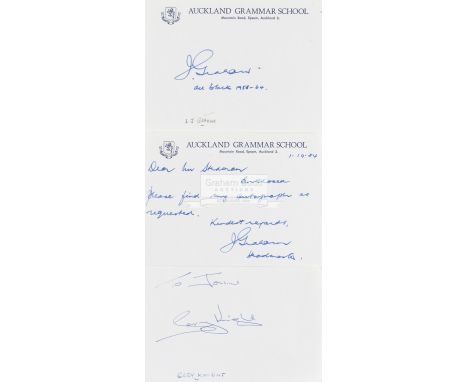 AUCKLAND GRAMMAR SCHOOL
Mountain Road, Epsom, Auckland 3.
J Graham.
All Black 1958-64.
AUCKLAND GRAMMAR SCHOOL
Mountain Road, Epsom, Auckland 3.
1-10-84
Dear Mr
Enclosed
Graham
AUCTIONS
Please find my autograph as
requested.
Kindest regards,
J Graham
Headmaster.
To John
Gary Knight
GARY KNIGHT